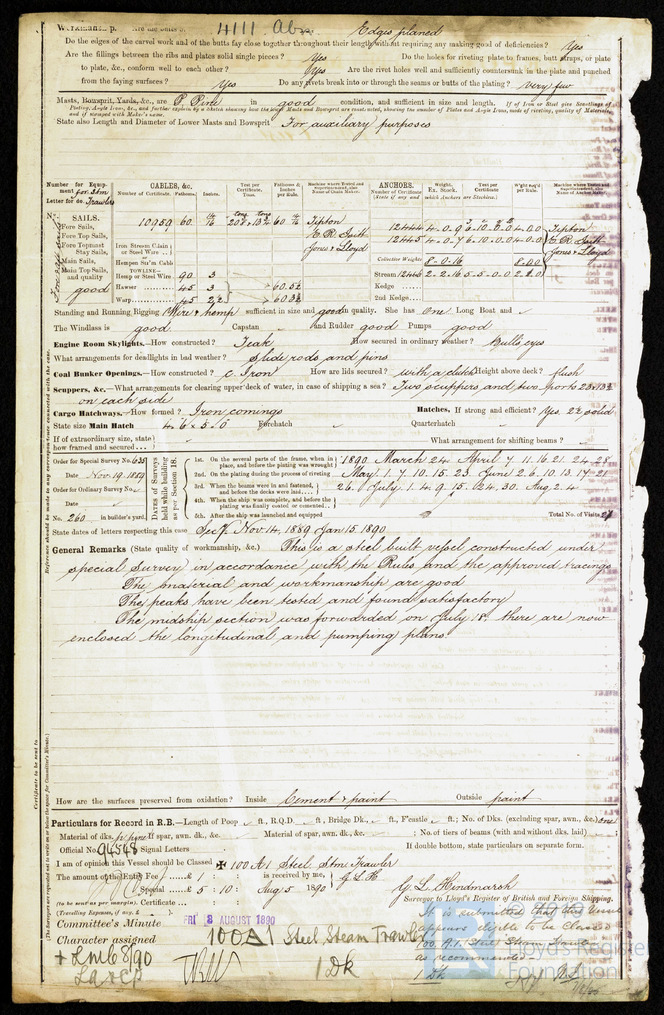 4111 Abn
Workmanship. Are the butts
Edges planed
Do the edges of the carvel work and of the butts fay close together throughout their length without requiring any making good of deficiencies? Yes
Are the fillings between the ribs and plates solid single pieces? Yes Do the holes for riveting plate to frames, butt straps, or plate
to plate, &c., conform well to each other? Yes Are the rivet holes well and sufficiently countersunk in the plate and punched
from the faying surfaces? Yes Do any rivets break into or through the seams or butts of the plating? very few
Masts, Bowsprit, Yards, &c., are P. Pine in good condition, and sufficient in size and length.
State also Length and Diameter of Lower Masts and Bowsprit For auxiliary purposes
Number for Equipment for Stm
Letter for do. Trawlers
CABLES, &c. Number of Certificate. Fathoms. Inches. Test per Certificate, Tons.
ANCHORS. Number of Certificate Weight, Ex. Stock. Test per Certificate
No. SAILS.
Fore Sails,
Fore Top Sails,
Fore Topmast
Stay Sails,
Main Sails,
Main Top Sails,
and quality
good
10959 60 Tipton
E. R. Smith
Jones & Lloyd
Iron Stream Chain
or Steel Wire
Hempen Stream Cable
TOWLINE—
Hemp or Steel Wire 90 3
Hawser 45 3
Warp 45
12444 Tipton
12445 E. R. Smith
Jones & Lloyd
Collective Weight 8.0.16
Stream 12446 2.2.16 5.5.0.0
Kedge
2nd Kedge
Standing and Running Rigging Wire & hemp sufficient in size and good in quality. She has one Long Boat and
The Windlass is good Capstan and Rudder good Pumps good
Engine Room Skylights.—How constructed? Teak How secured in ordinary weather? Bulls eyes
What arrangements for deadlights in bad weather? Slide rods and pins
Coal Bunker Openings.—How constructed? C. Iron How are lids secured? with a clutch Height above deck? flush
Scuppers, &c.—What arrangements for clearing upper deck of water, in case of shipping a sea? Two scuppers and two ports
on each side
Cargo Hatchways.—How formed? Iron comings Hatches, If strong and efficient? Yes solid
State size Main Hatch 4.6 x 5.0 Forehatch Quarterhatch
If of extraordinary size, state
how framed and secured What arrangement for shifting beams?
Order for Special Survey No. 635
Date Nov. 19. 1889
Order for Ordinary Survey No.
Date
No. 260 in builder's yard.
Dates of Surveys held while building as per Section 18.
1st. On the several parts of the frame, when in place, and before the plating was wrought 1890 March 24 April 7. 11. 16. 21. 24. 28
2nd. On the plating during the process of riveting May 1. 7. 10. 15. 23. June 2. 6. 10. 13. 17. 21
3rd. When the beams were in and fastened, and before the decks were laid 26. July 1. 4. 9. 15. 24. 30. Aug. 2. 4
4th. When the ship was complete, and before the plating was finally coated or cemented
5th. After the ship was launched and equipped
Total No. of Visits
State dates of letters respecting this case Secy. Nov. 14. 1889 Jan 15. 1890
General Remarks (State quality of workmanship, &c.) This is a steel built vessel constructed under
special survey in accordance with the Rules and the approved tracings
The material and workmanship are good
The peaks have been tested and found satisfactory
The midship section was forwarded on July 18. there are now
enclosed the longitudinal and pumping plans.
How are the surfaces preserved from oxidation? Inside Cement & paint Outside paint
Particulars for Record in R.B.—Length of Poop ft., R.Q.D. ft., Bridge Dk. ft., F'castle ft.; No. of Dks. (excluding spar, awn., &c.) one
Material of dks. p pine If spar, awn. dk., &c. Material of spar, awn. dk., &c. ; No. of tiers of beams (with and without dks. laid)
Official No. 94548 Signal Letters If double bottom, state particulars on separate form.
I am of opinion this Vessel should be Classed ✠ 100 A1 Steel Stm Trawler
The amount of the Entry Fee £ 1 : : is received by me, G L H
Special £ 5 : 10 : Aug 5 1890 G L Hindmarsh
(to be sent as per margin). Certificate Surveyor to Lloyd's Register of British and Foreign Shipping.
(Travelling Expenses, if any, £
Committee's Minute FRI 8 AUGUST 1890
Character assigned 100A1 Steel Steam Trawler
+ LMC 8/90 1 Dk
It is submitted that this Vessel
appears eligible to be Classed
100. A.1. Steel Steam Trawler
as recommended
1 Dk
Lloyd's Register
Foundation